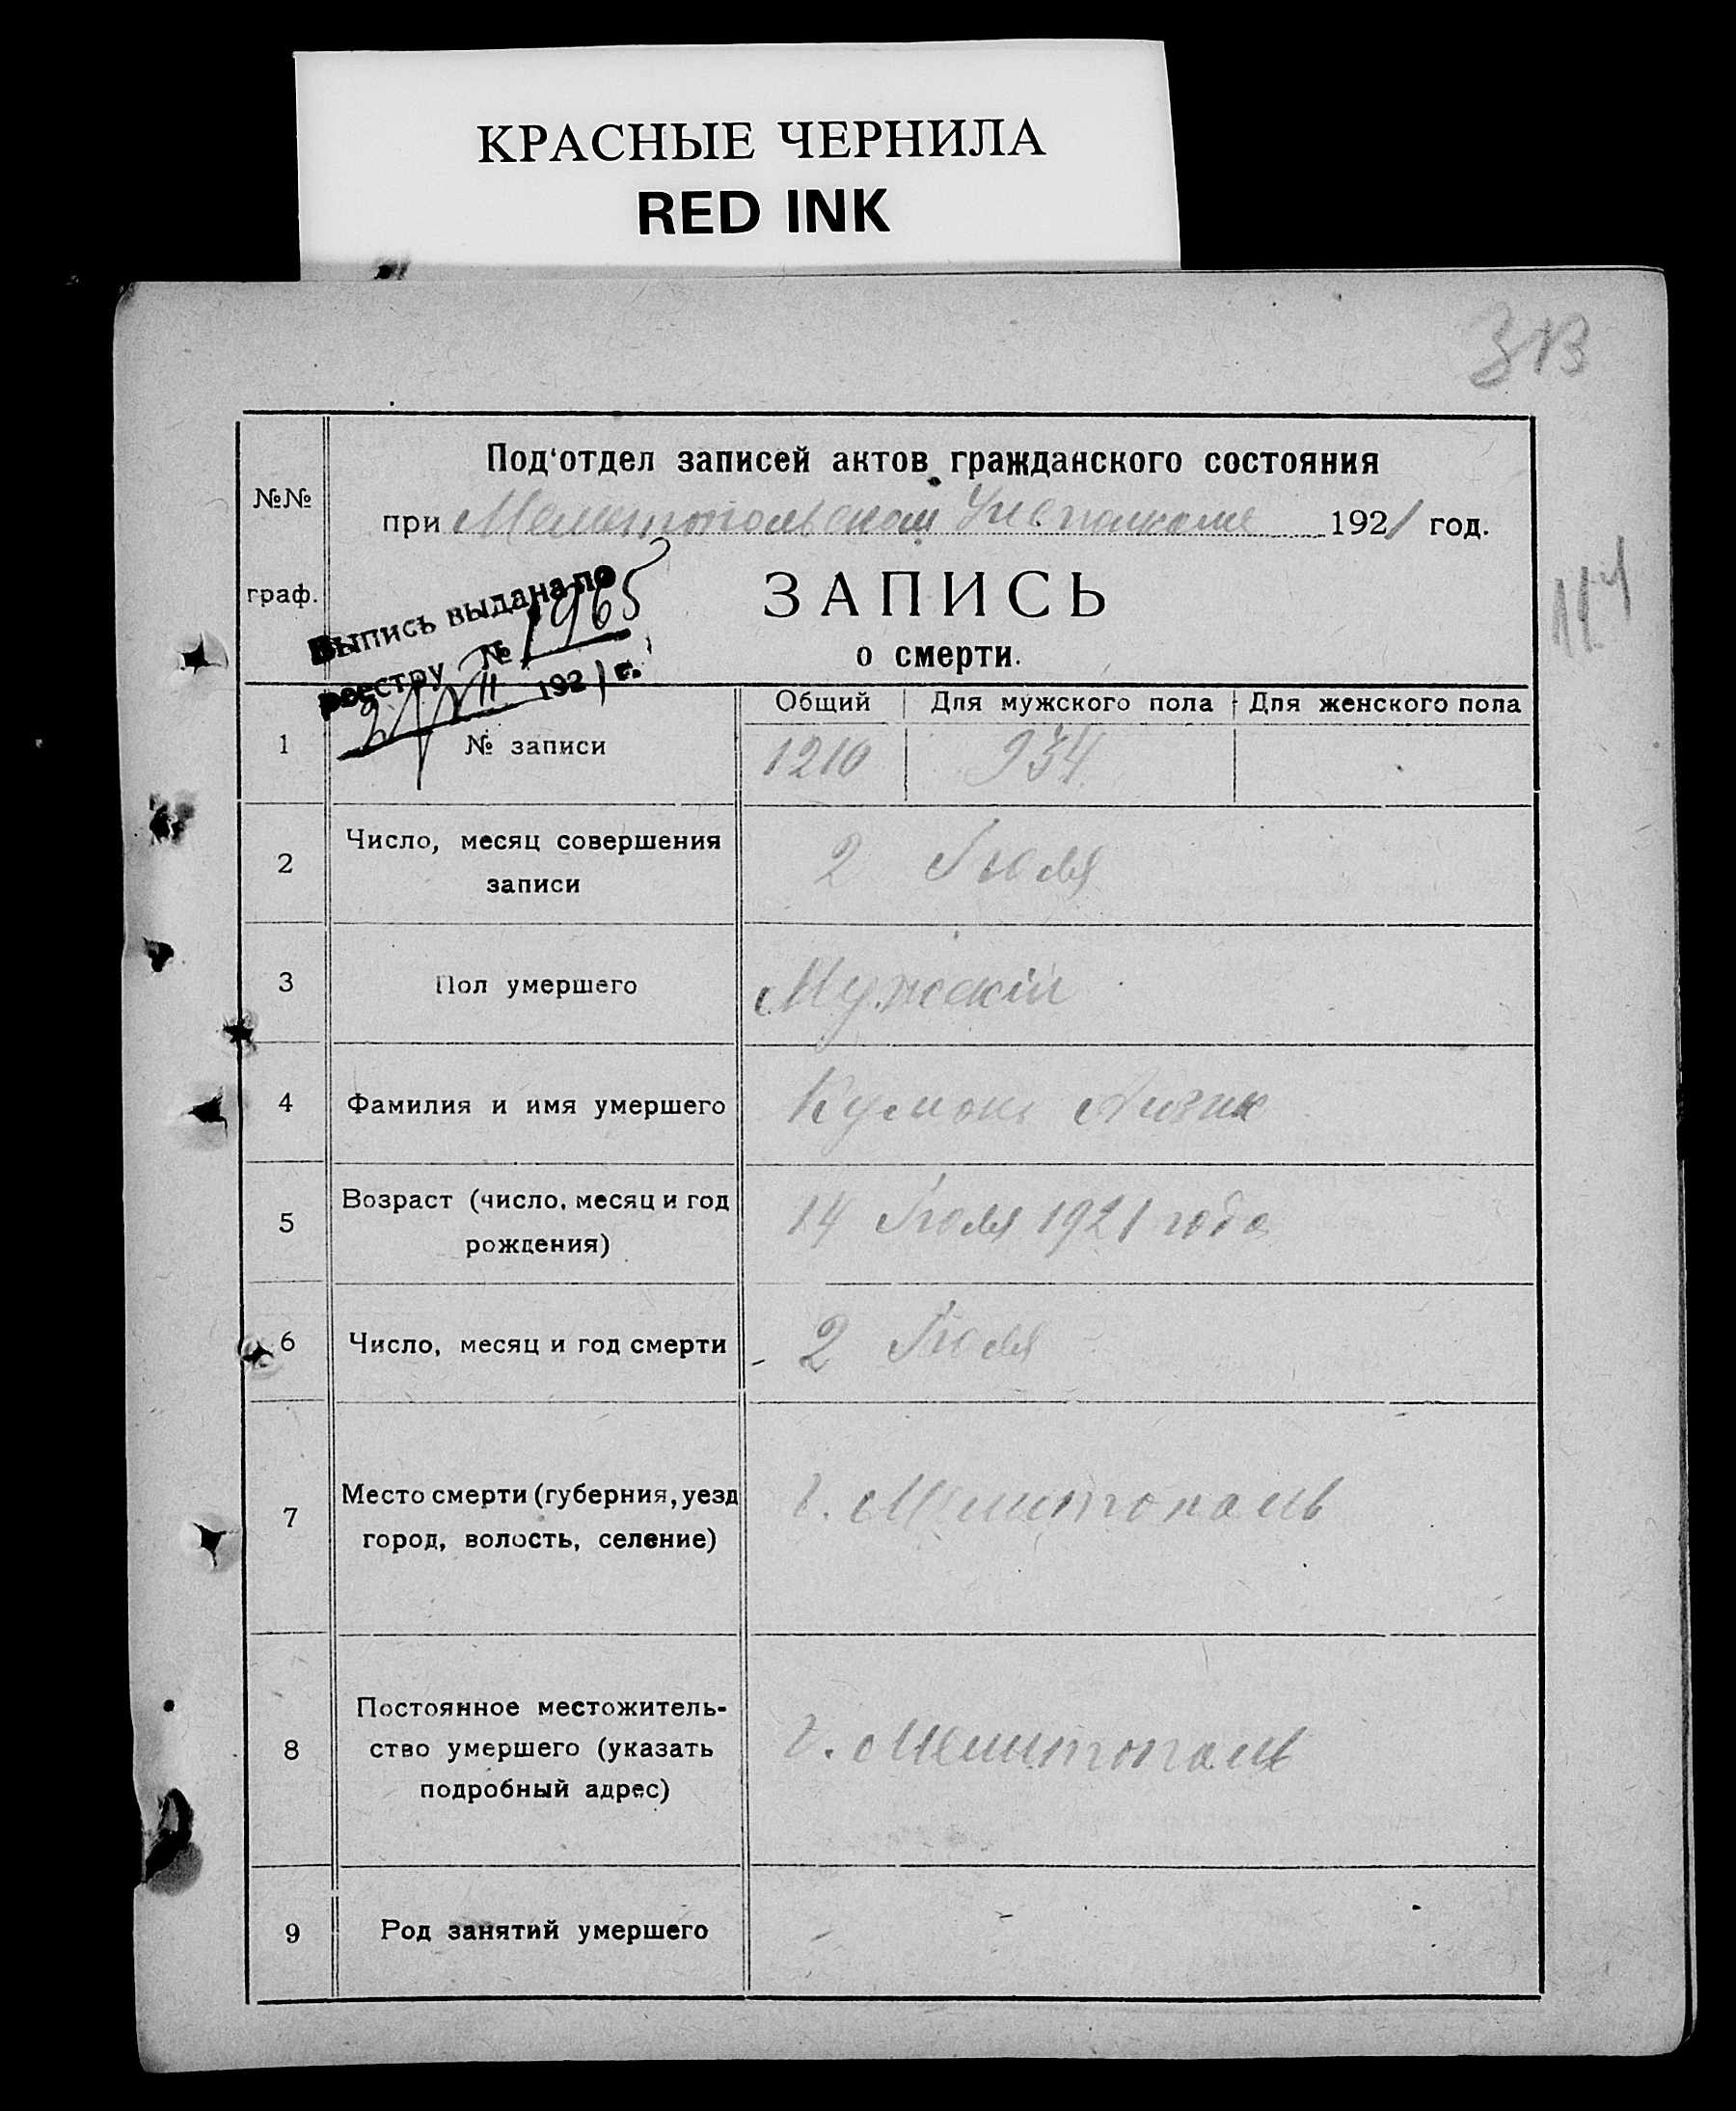 КРАСНЫЕ ЧЕРНИЛА
RED INK
313
№№
граф.
Под'отдел записей актов гражданского состояния
при Мелитопольском Уисполкоме 1921 год.
ЗАПИСЬ
о смерти.
Выпись выдана по
реестру № 1965
2/VII 1921 г.
Общий Для мужского пола Для женского пола
1 № записи 1210 934
2 Число, месяц совершения
записи
2 Июля
3 Пол умершего Мужскiй
4 Фамилия и имя умершего
5 Возраст (число, месяц и год
рождения)
14 Июля 1921 года
6 Число, месяц и год смерти 2 Июля
7 Место смерти (губерния, уезд
город, волость, селение)
г. Мелитополь
8 Постоянное местожитель-
ство умершего (указать
подробный адрес)
г. Мелитополь
9 Род занятий умершего -